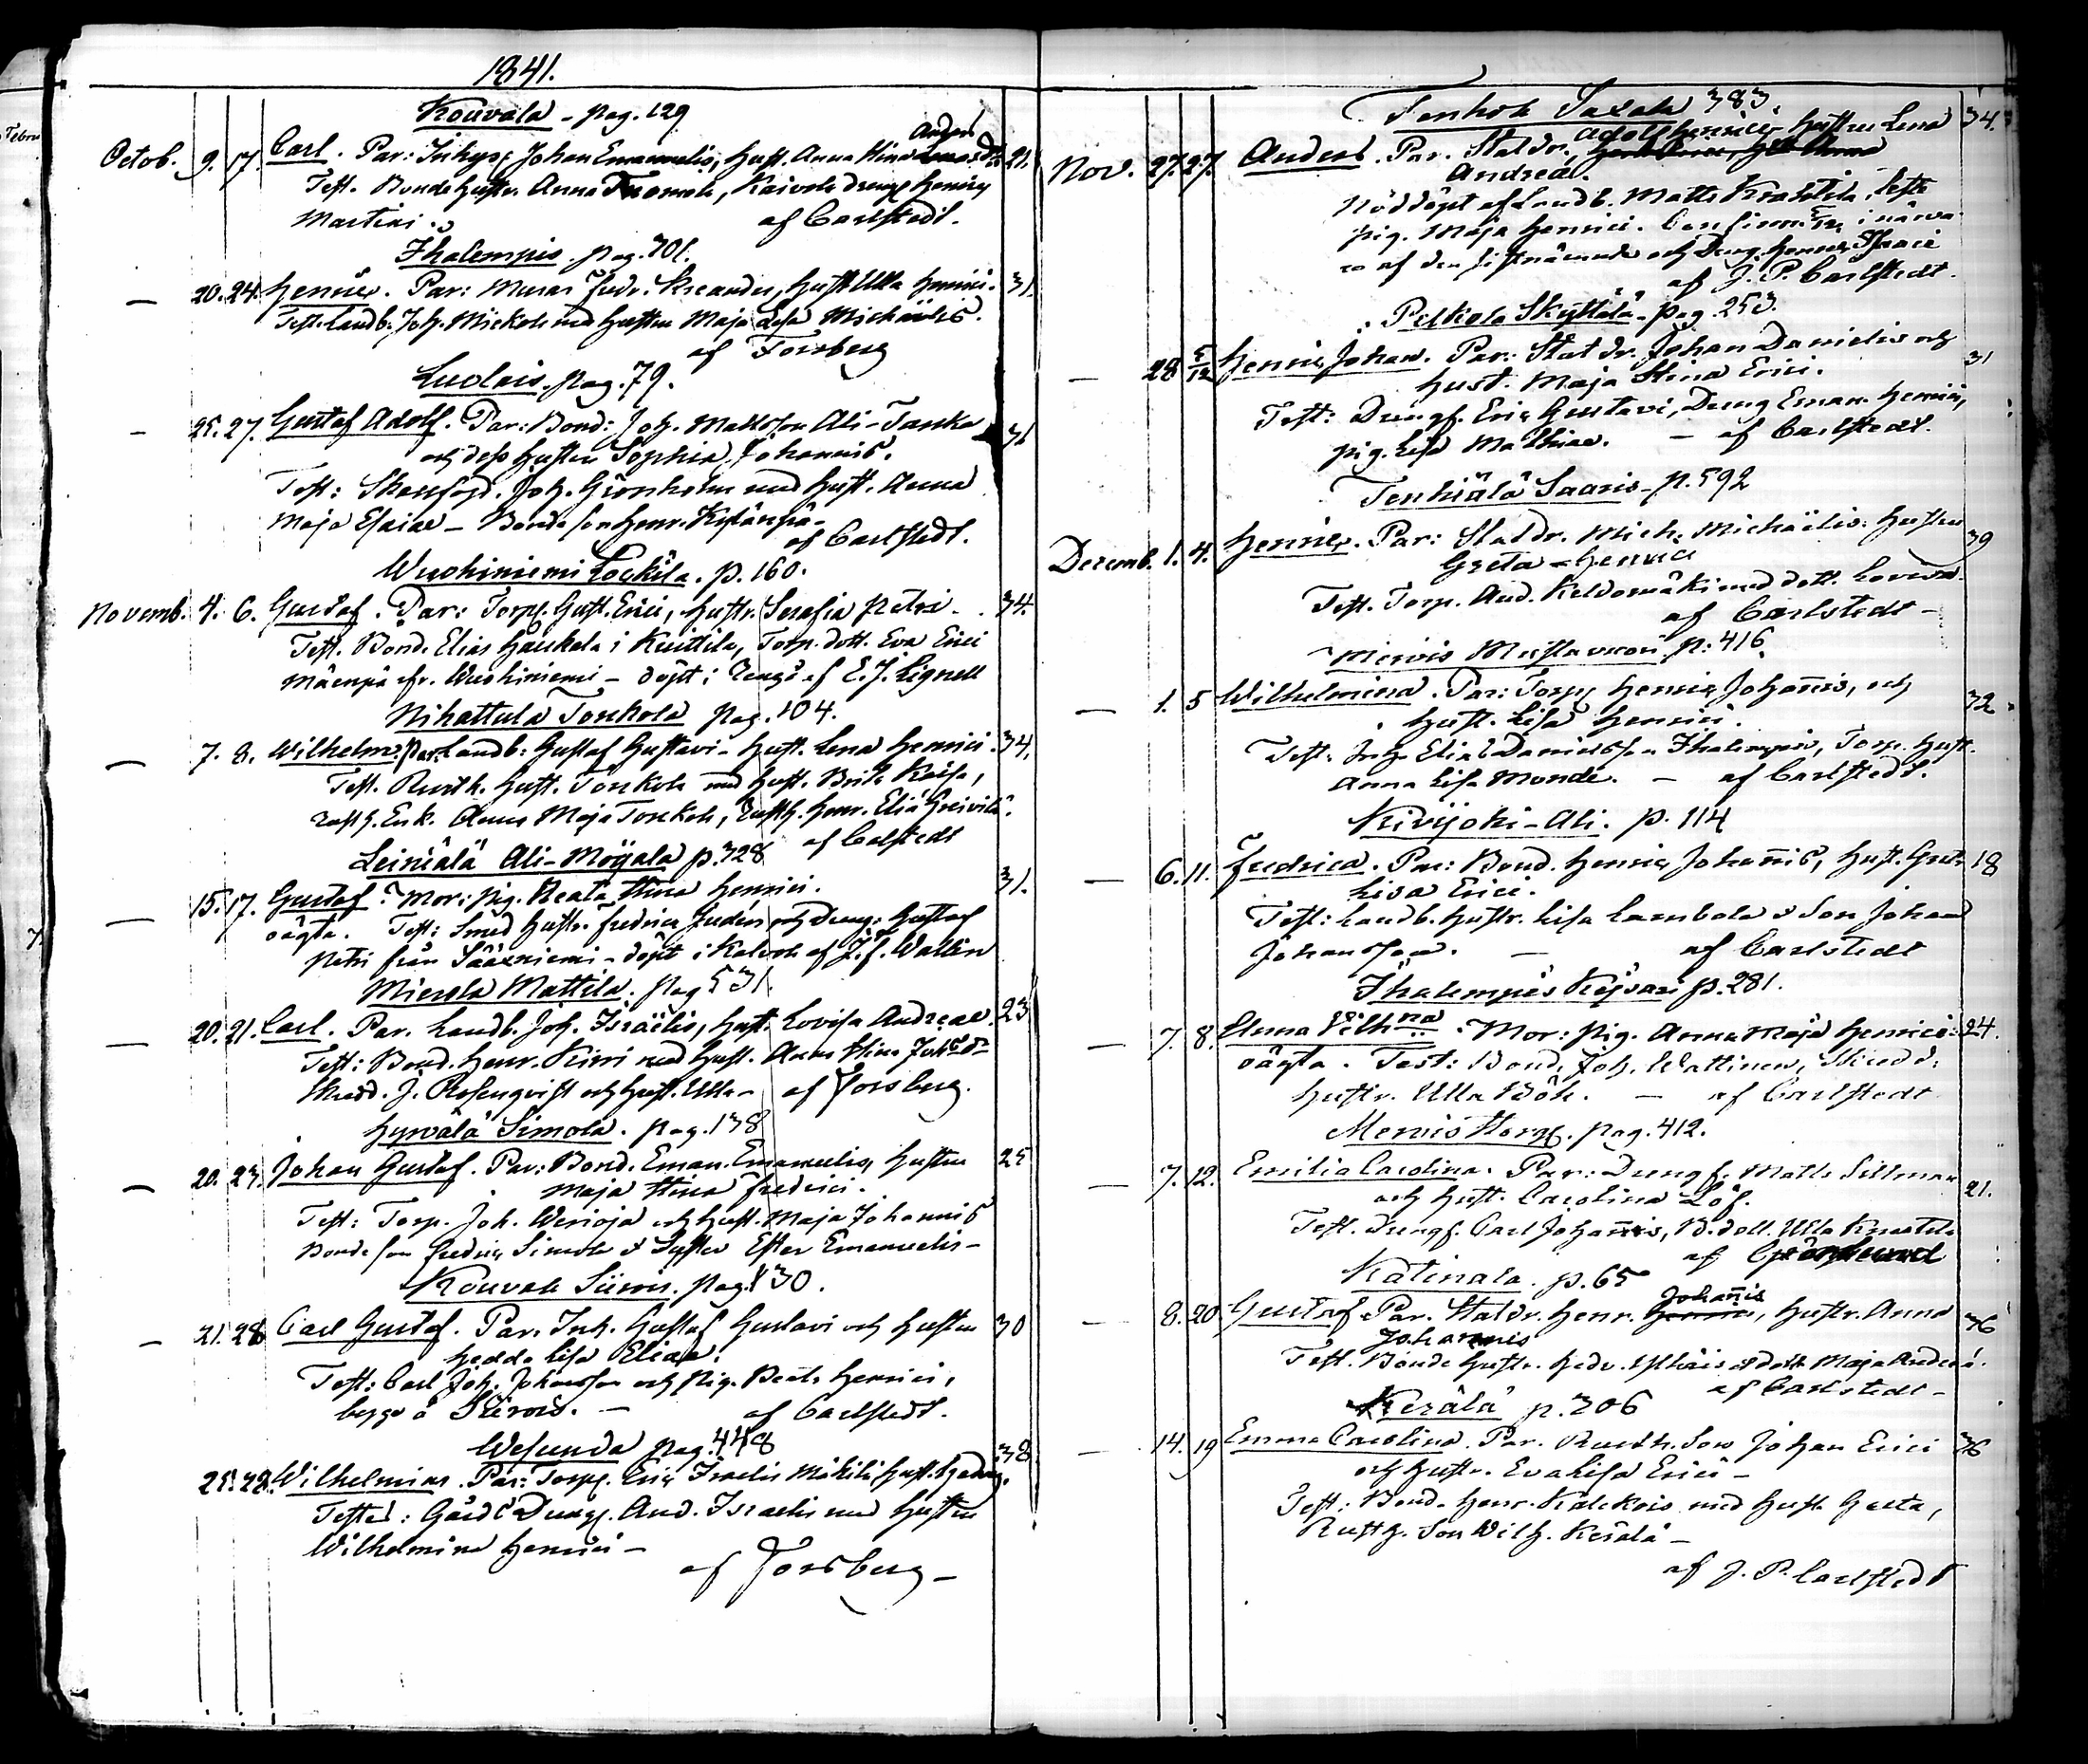 1841.
Kouvala - pag. 129
Anders
Octob. 9. 17. Carl. Par: Inhys, Johan Emanuelis, hust. Anna Stina 21.
Test. Bonde hustr. Anna Tuomola, Kaivola dreng Henric
Martini. af Carlstedt.
Ihalempis. pag. 301.
— 20. 24. Henric. Par: Murar Fredr. Kreander, hust. Ulla Henrici. 31.
Test. Landb. Joh. Mickola med hustru Maja Lisa Michaelis.
af Forsberg
Luolais. pag. 79.
— 25. 27. Gustaf Adolf. Par: Bond: Joh. Mattsson Ali-Tanka 31
och dess hustru Sophia Johannis.
Test: Skarfogd. Joh. Grönholm med hust. Anna
Maja Esaiae - Bonde son Henr.
af Carlstedt.
Wuohiniemi Lockila. p. 160.
Novemb. 4. 6. Gustaf. Par: Torp. Gust. Erici, hustr. Serafia Petri. 34.
Test. Bond. Elias Hauckala i Kuittila, Torp. dott. Eva Erici
Mäenpä fr. Wuohiniemi - döpt i Rengo af E. J. Lignell
Nihattula Tonkola pag. 104.
— 7. 8. Wilhelm. Par. Landb: Gustaf Gustavi - hust. Lena Henrici. 34.
Test. Rusth. Gust. Tonkola med hust. Brita Kaisa,
rusth. Enk. Anna Maja Tonkola, Rusth. Henr. Elia
af Calstedt
Leiniälä Ali-Möyala p. 328
— 15. 17. Gustaf. Mor: pig. Beata Stina Henrici. 31.
oägta. Test: Smed hustr. Fredrica och Dreng: Gustaf
Petri från Sääxniemi - döpt i Kalvola af J. F. Wallin
Mierola Mattila. pag 531.
— 20. 21. Carl. Par. Landb. Joh. Israëlis, hust. Lovisa Andreae. 23
Test: Bond. Henr. Kirri med hust. Anna Stina
Skredd. J. Rosenqvist och hust. Ulla - af Forsberg.
Hyrvälä Simola. pag. 138
— 20. 23. Johan Gustaf. Par: Bond. Eman. Emanuelis, hustru 25
Maja Stina Fredrici.
Test: Torp. Joh. Werioja och hust. Maja Johannis
Bonde son Fredric Simola & Syster Ester Emanuelis -
Kouvola Siiron. pag. 130.
— 21. 28 Carl Gustaf. Par. Inh. Gustaf Gustavi och hustru 30
Hedda Lisa Eliae.
Test: Carl Joh. Johansson och pig. Beata Henrici,
begge å — af Carlstedt.
Wesunda pag. 448
25. 28. Wilhelmina. Par: Torp. Eric Israelis Mäkilä hust. 38.
Testes: Gårds Dreng. And. Israelis med hustru
Wilhelmina Henrici -
af Forsberg -
383.
Adolf Henrici,
Nov. 27. 27. Anders. Par. Statdr., hustru Lena 34.
Andreae.
Nöddöpt af Landb. Matts Krahtila, test.
pig. Maja Henrici. Confirm. 5/12 i närva
ro af den sistnämnde och Dreng. Henric Isaaci
af J. P. Carlstedt.
Pelkola Skyttälä - pag. 253.
— 28 5/12 Henric Johan. Par: Statdr. Johan Danielis och 31
hust. Maja Stina Erici.
Test: Drengf. Eric Gustavi, Dreng Eman. Henrici,
pig. Lisa Mathiae. — af Carlstedt.
Tenhiälä Saaris - p. 592
Decemb. 1. 4. Henric. Par: Statdr. Mich. Michaëlis. hustru 39
Greta Henrici
Test. Torp. And. Keldomäki med dott. Lovisa.
af Carlstedt -
Mervis Mustavuori p. 416.
— 1. 5 Wilhelmina. Par: Torp. Henric Johannis, och 32
hust. Lisa Henrici.
Test. Inh. Elias Danielsson Ihalempis, Torp. hust.
Anna Lisa Monde. — af Carlstedt.
Kivijoki-Ali. p. 114
— 6. 11. Fredrica. Par: Bond. Henric Johannis, hust. Greta 18
Lisa Erici.
Test: Landb. hustr. Lisa Lambola & Son Johan
Johansson. — af Carlstedt
Ihalempis p. 281.
— 7. 8. Emma Vilhna. Mor: pig. Anna Maja Henrici. 24.
oägta. Test: Bond. Joh. Wattinen, Skredd.
hustr. Ulla Böök. — af Carlstedt
Mervis pag. 412.
— 7. 12. Emilia Carolina. Par: Drengf. Matts Sillman 21.
och hust. Carolina Löf.
Test. Drengf. Carl Johannis, B. dott. Ulla Knuutila
af Grönlund
Katinala. p. 65
Johannis
— 8. 20. Gustaf. Par. Statdr. Henr. Henrici, hustr. Anna 36
Johannis
Test. Bonde hustr. Hedv. och dott. Maja Andreae.
af Carlstedt -
Kerälä p. 306
— 14. 19 Emma Carolina. Par. Rusth. Son Johan Erici 36
och hustr. Eva Lisa Erici -
Test: Bond. Henr. Kalckois med hust. Greta,
Rusth. Son Wilh. Kerälä -
af J. P. Carlstedt